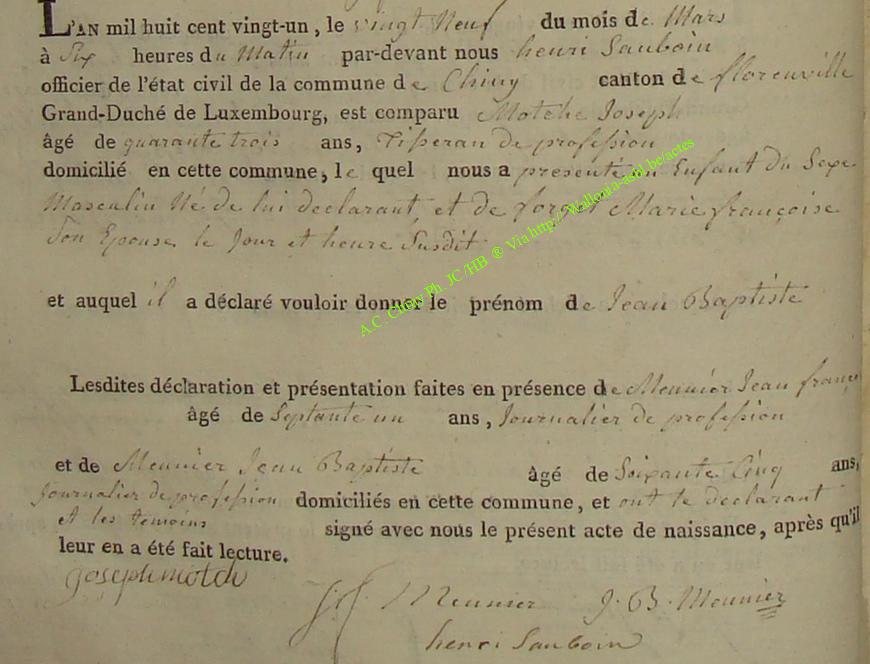 L'AN mil huit cent vingt-un, le vingt Neuf du mois de Mars
à Six heures du Matin par-devant nous henri Sauboin
officier de l'état civil de la commune de Chiny canton de florenville
Grand-Duché de Luxembourg, est comparu Motche Joseph
âgé de quarante trois ans, Tisseran de profession
domicilié en cette commune, le quel nous a présenté un Enfant du Sexe
Masculin Né de lui declarant, et de Marie françoise
Son Epouse, le Jour et heure Susdit
et auquel il a déclaré vouloir donner le prénom de Jean Baptiste
Lesdites déclaration et présentation faites en présence de Meunier Jean
âgé de Septante un ans, Journalier de profession
et de Meunier Jean Baptiste âgé de Soixante Cinq ans,
Journalier de profession domiciliés en cette commune, et ont le declarant
et les temoins signé avec nous le présent acte de naissance, après qu'il
leur en a été fait lecture.
joseph motch
J. f. Meunier J. B. Meunier
henri Sauboin
A.C. Chiny Ph. JC/HB ® Via http://Wallonia-asbl.be/actes